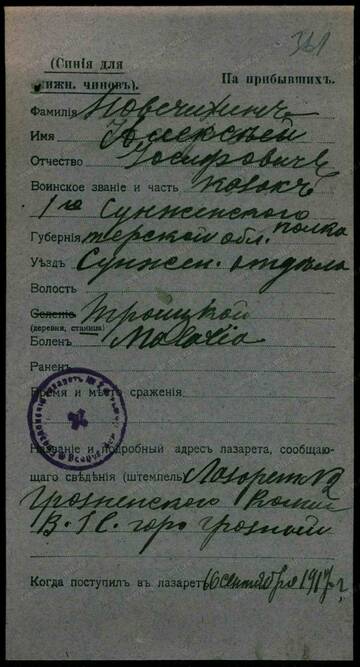 361
(Синія для
нижн. чиновъ).
На прибывшихъ.
Фамилія Новечихинъ
Имя Алексѣй
Отчество Іосифовичъ
Воинское званіе и часть казакъ
1го Сунженского полка
Губернія Терской обл.
Уѣздъ Сунжен. отдѣла
Волость
Селеніе Троицкой
(деревня, станица)
Боленъ Malaria
Раненъ
Время и мѣсто сраженія
Названіе и подробный адресъ лазарета, сообщаю-
щаго свѣдѣнія (штемпель) Лазаретъ №
Грозненского
В. Г. С. гор. Грозный
Когда поступилъ въ лазаретъ 6 сентября 1917 г.